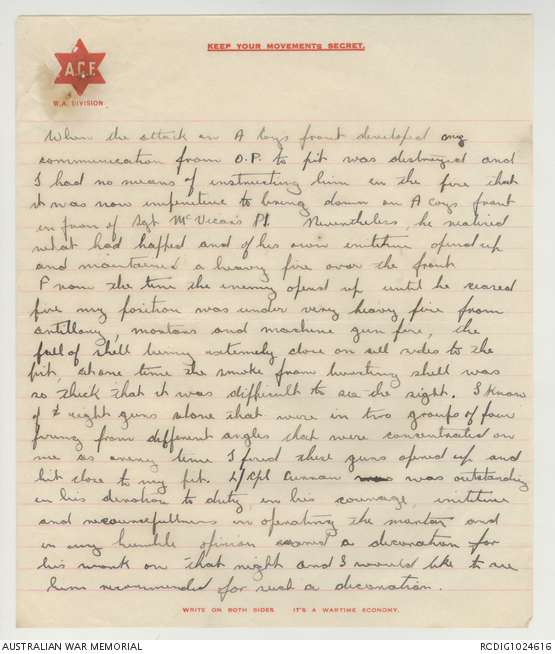 KEEP YOUR MOVEMENTS SECRET.
A.C.F.
W.A. DIVISION
When the attack on A Coys front developed my
communication from O.P. to pit was destroyed and
I had no means of instructing him in the fire that
it was now imperitive to bring down on A Coys front
in front of Sgt McVicars Pl. Nevertheless, he realized
what had happed and of his own inititive opend up
and maintained a heavy fire over the front
From the time the enemy opend up until he ceased
fire my position was under very heavy fire from
artillary, mortars and machine gun fire, the
fall of shell being extemely close on all sides to the
pit, at one time the smoke from bursting shell was
so thick that it was difficult to see the sight. I know
of eight guns alone that were in two groups of four
firing from different angles that were concentrated on
me as every time I fired these guns opned up and
hit close to my pit. L/Cpl Curran was outstanding
in his devotion to duty, in his courage, inititive
and resourcefullness in operating the mortar and
in my humble opinion earned a decoration for
his work on that night and I would like to see
him recommended for such a decoration.
WRITE ON BOTH SIDES. IT'S A WARTIME ECONOMY.
AUSTRALIAN WAR MEMORIAL
RCDIG1024616